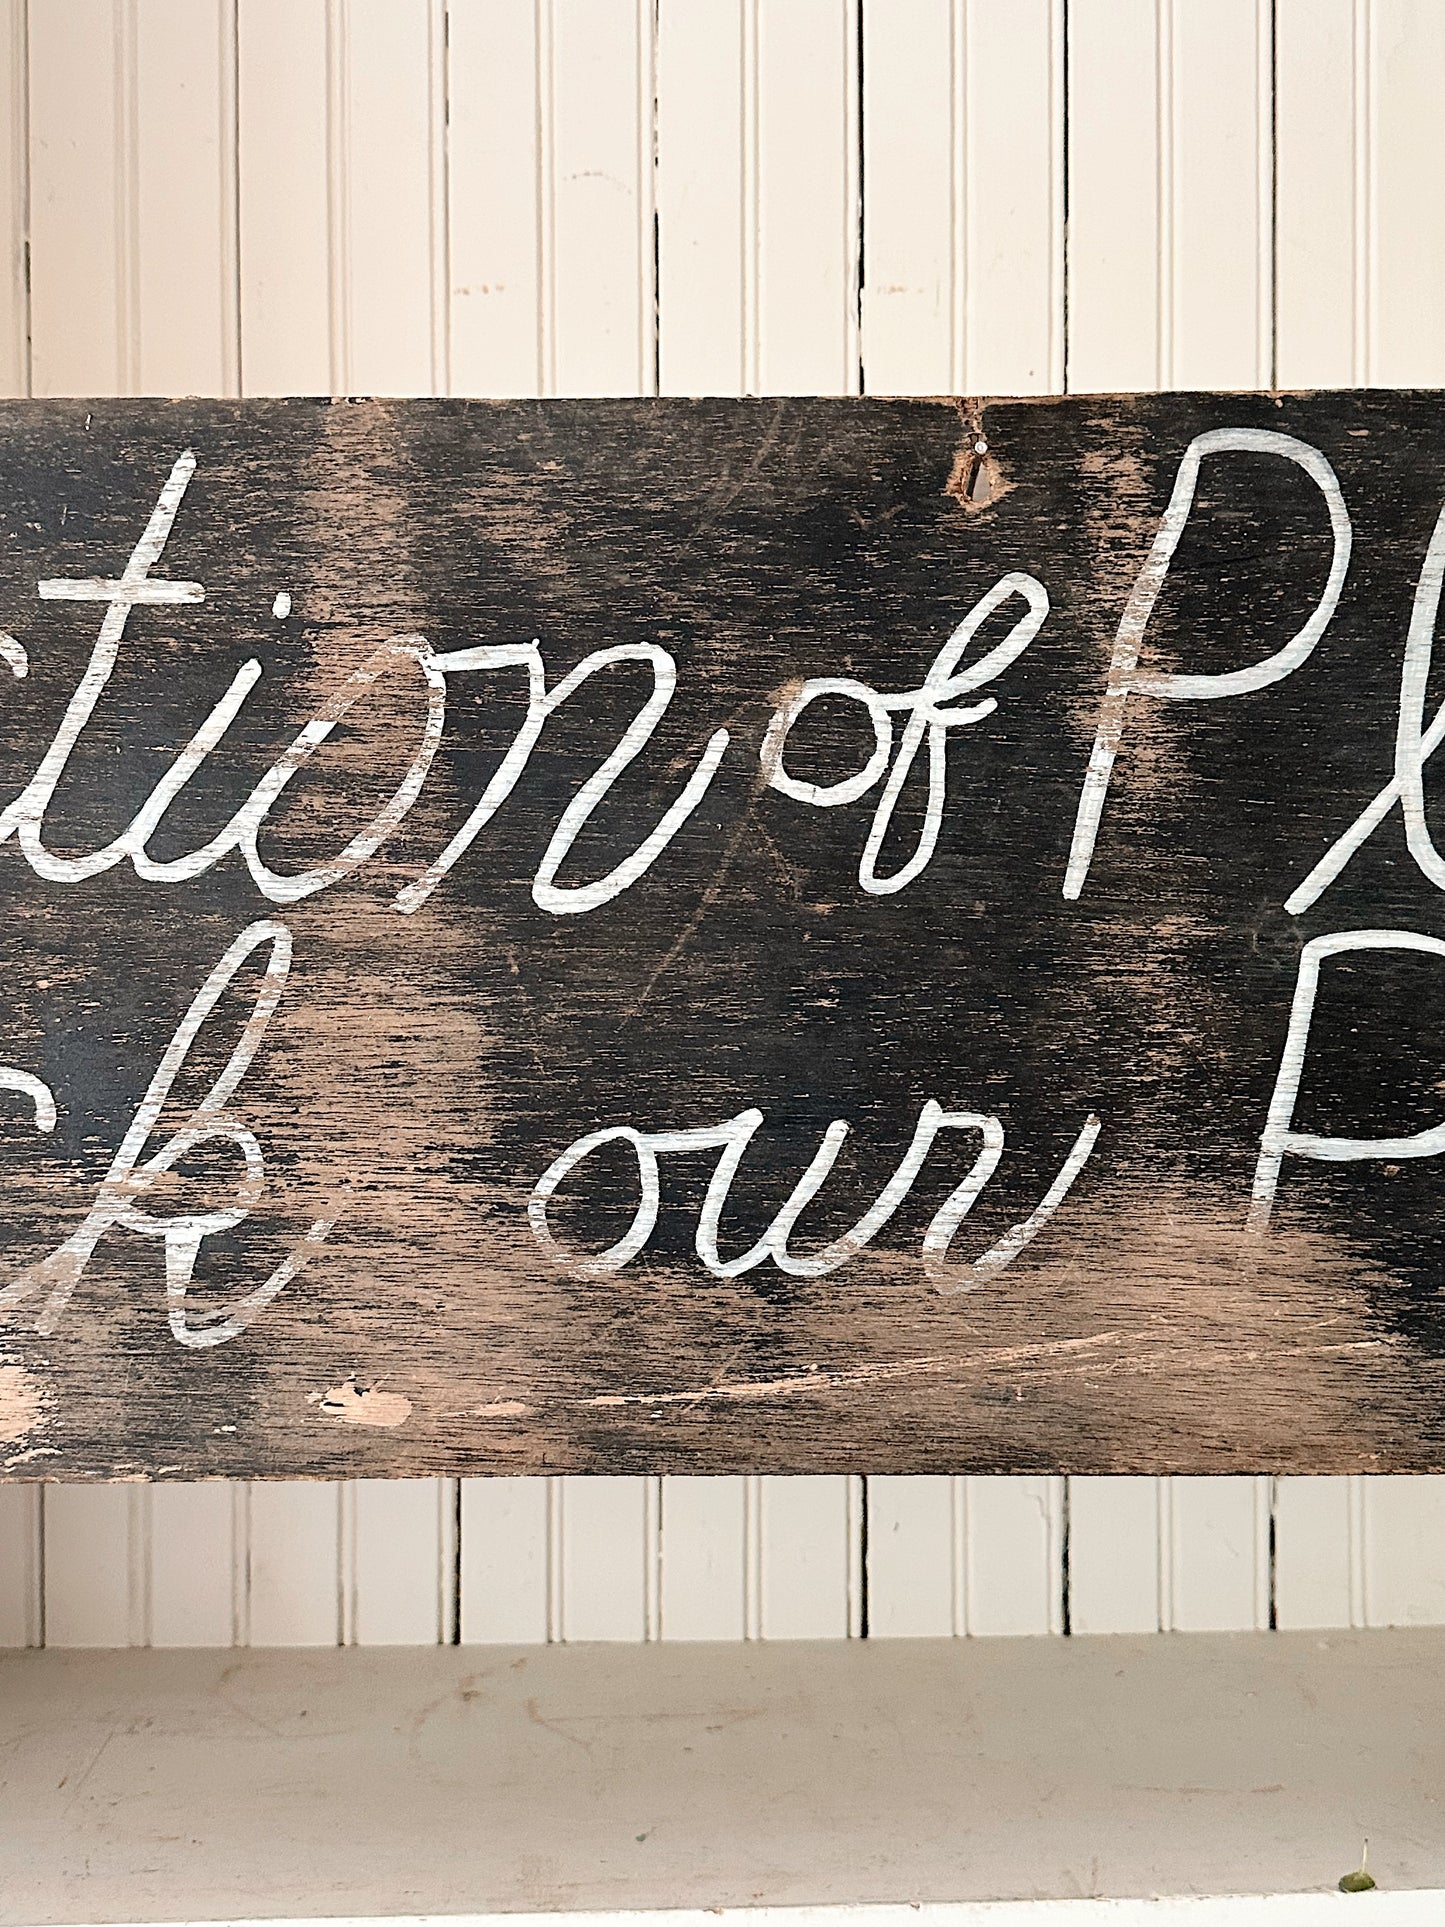 ction of Pl
ck our P